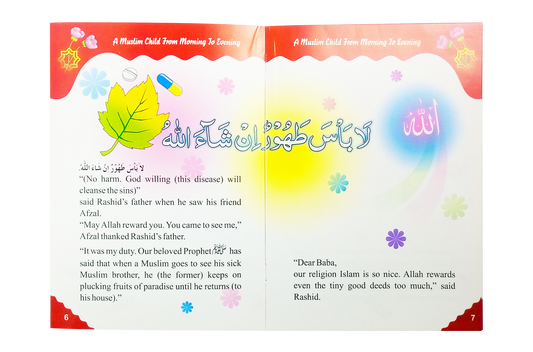 A Muslim Child From Morning To Evening
لَا بَأْسَ طَهُوْرٌ اِنْ شَآءَ اللّٰهُ
لَا بَأْسَ طَهُوْرٌ اِنْ شَاءَ اللّٰهُ
“(No harm. God willing (this disease) will
cleanse the sins)”
said Rashid’s father when he saw his friend
Afzal.
“May Allah reward you. You came to see me,”
Afzal thanked Rashid’s father.
“It was my duty. Our beloved Prophet ﷺ has
said that when a Muslim goes to see his sick
Muslim brother, he (the former) keeps on
plucking fruits of paradise until he returns (to
his house).”
6
A Muslim Child From Morning To Evening
الله
“Dear Baba,
our religion Islam is so nice. Allah rewards
even the tiny good deeds too much,” said
Rashid.
7